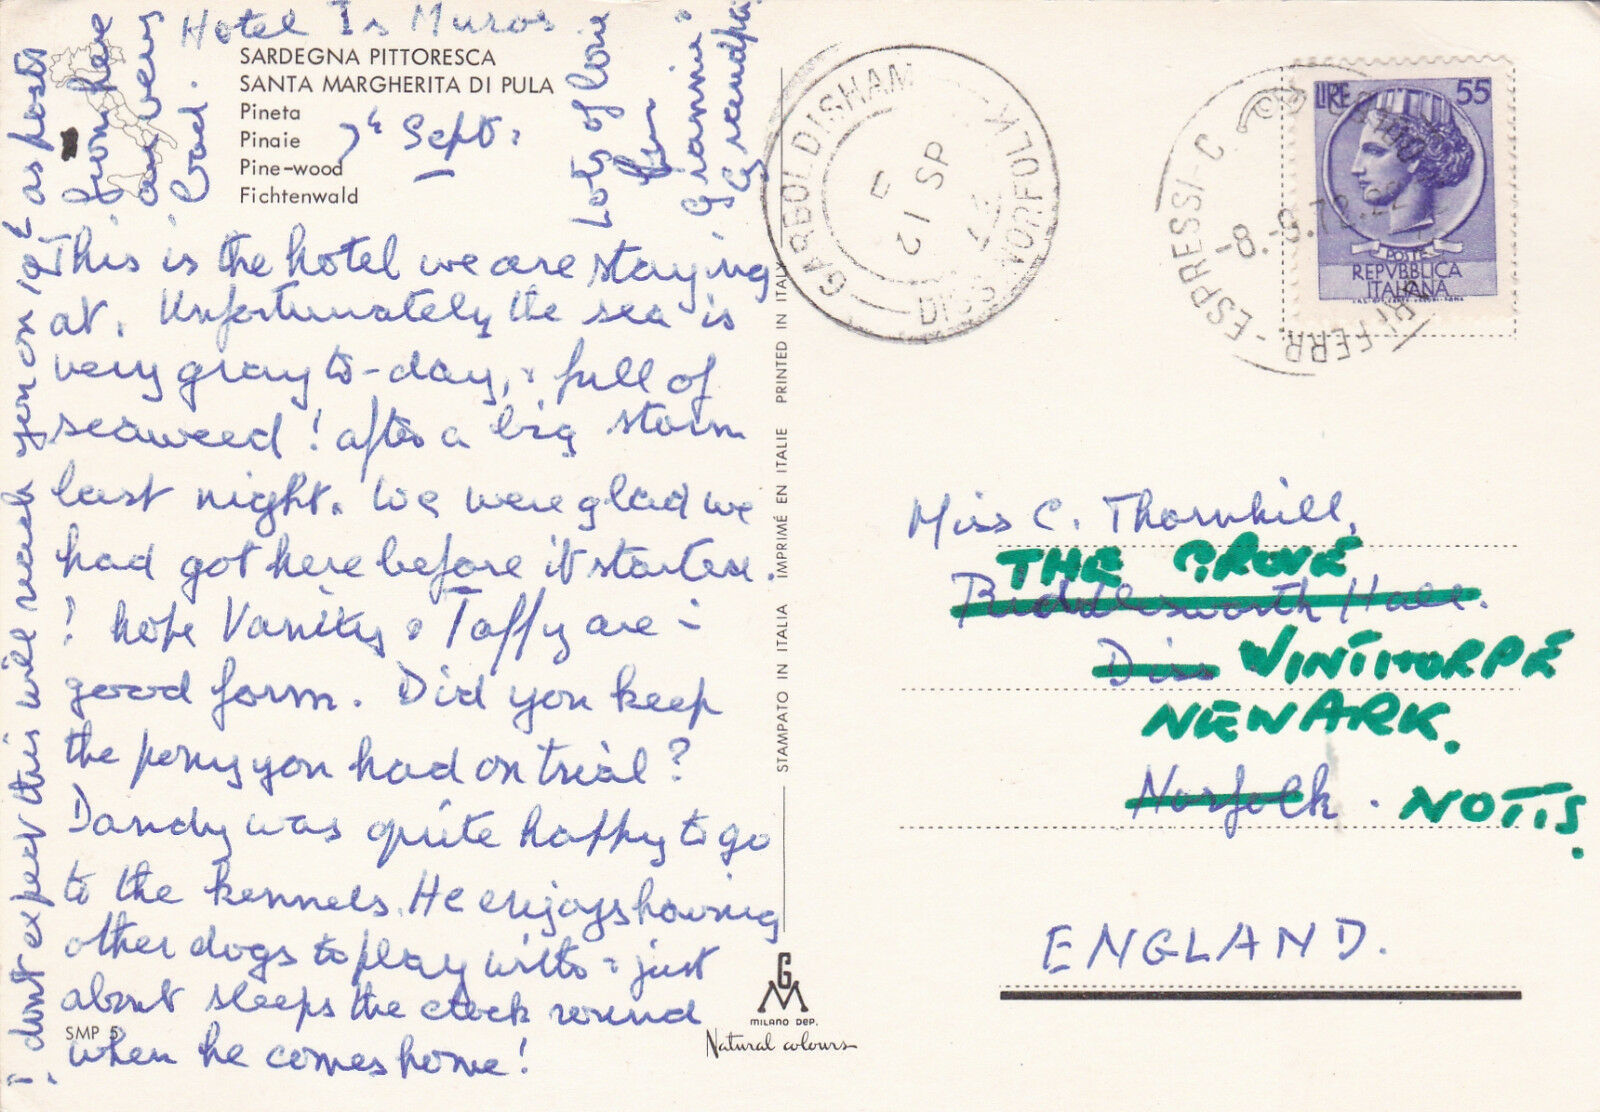 Hotel Is Muros
SARDEGNA PITTORESCA
SANTA MARGHERITA DI PULA
Pineta
Pinaie
Pine-wood
Fichtenwald
7th Sept:
This is the hotel we are staying
at. Unfortunately the sea is
very gray to-day, & full of
seaweed! after a big storm
last night. We were glad we
had got here before it started.
I hope Vanity & Taffy are in
good form. Did you keep
the pony you had on trial?
Dandy was quite happy to go
to the kennels. He enjoys having
other dogs to play with & just
about sleeps the clock round
when he comes home!
I don't expect this will reach you on 10th as posts
from here
are very
bad.
Lots of love
from
Grannie &
Grandpa.
SMP 5
STAMPATO IN ITALIA IMPRIMÉ EN ITALIE PRINTED IN ITALY
GM
MILANO DEP.
Natural colours
GARBOLDISHAM
DISS NORFOLK
12 SP
ESPRESSI-C
FERR
-8.-9.72
LIRE 55
POSTE
REPVBBLICA
ITALIANA
Miss C. Thornhill,
THE GROVE
Riddlesworth Hall.
Diss WINTHORPE
NEWARK.
Norfolk. NOTTS.
ENGLAND.